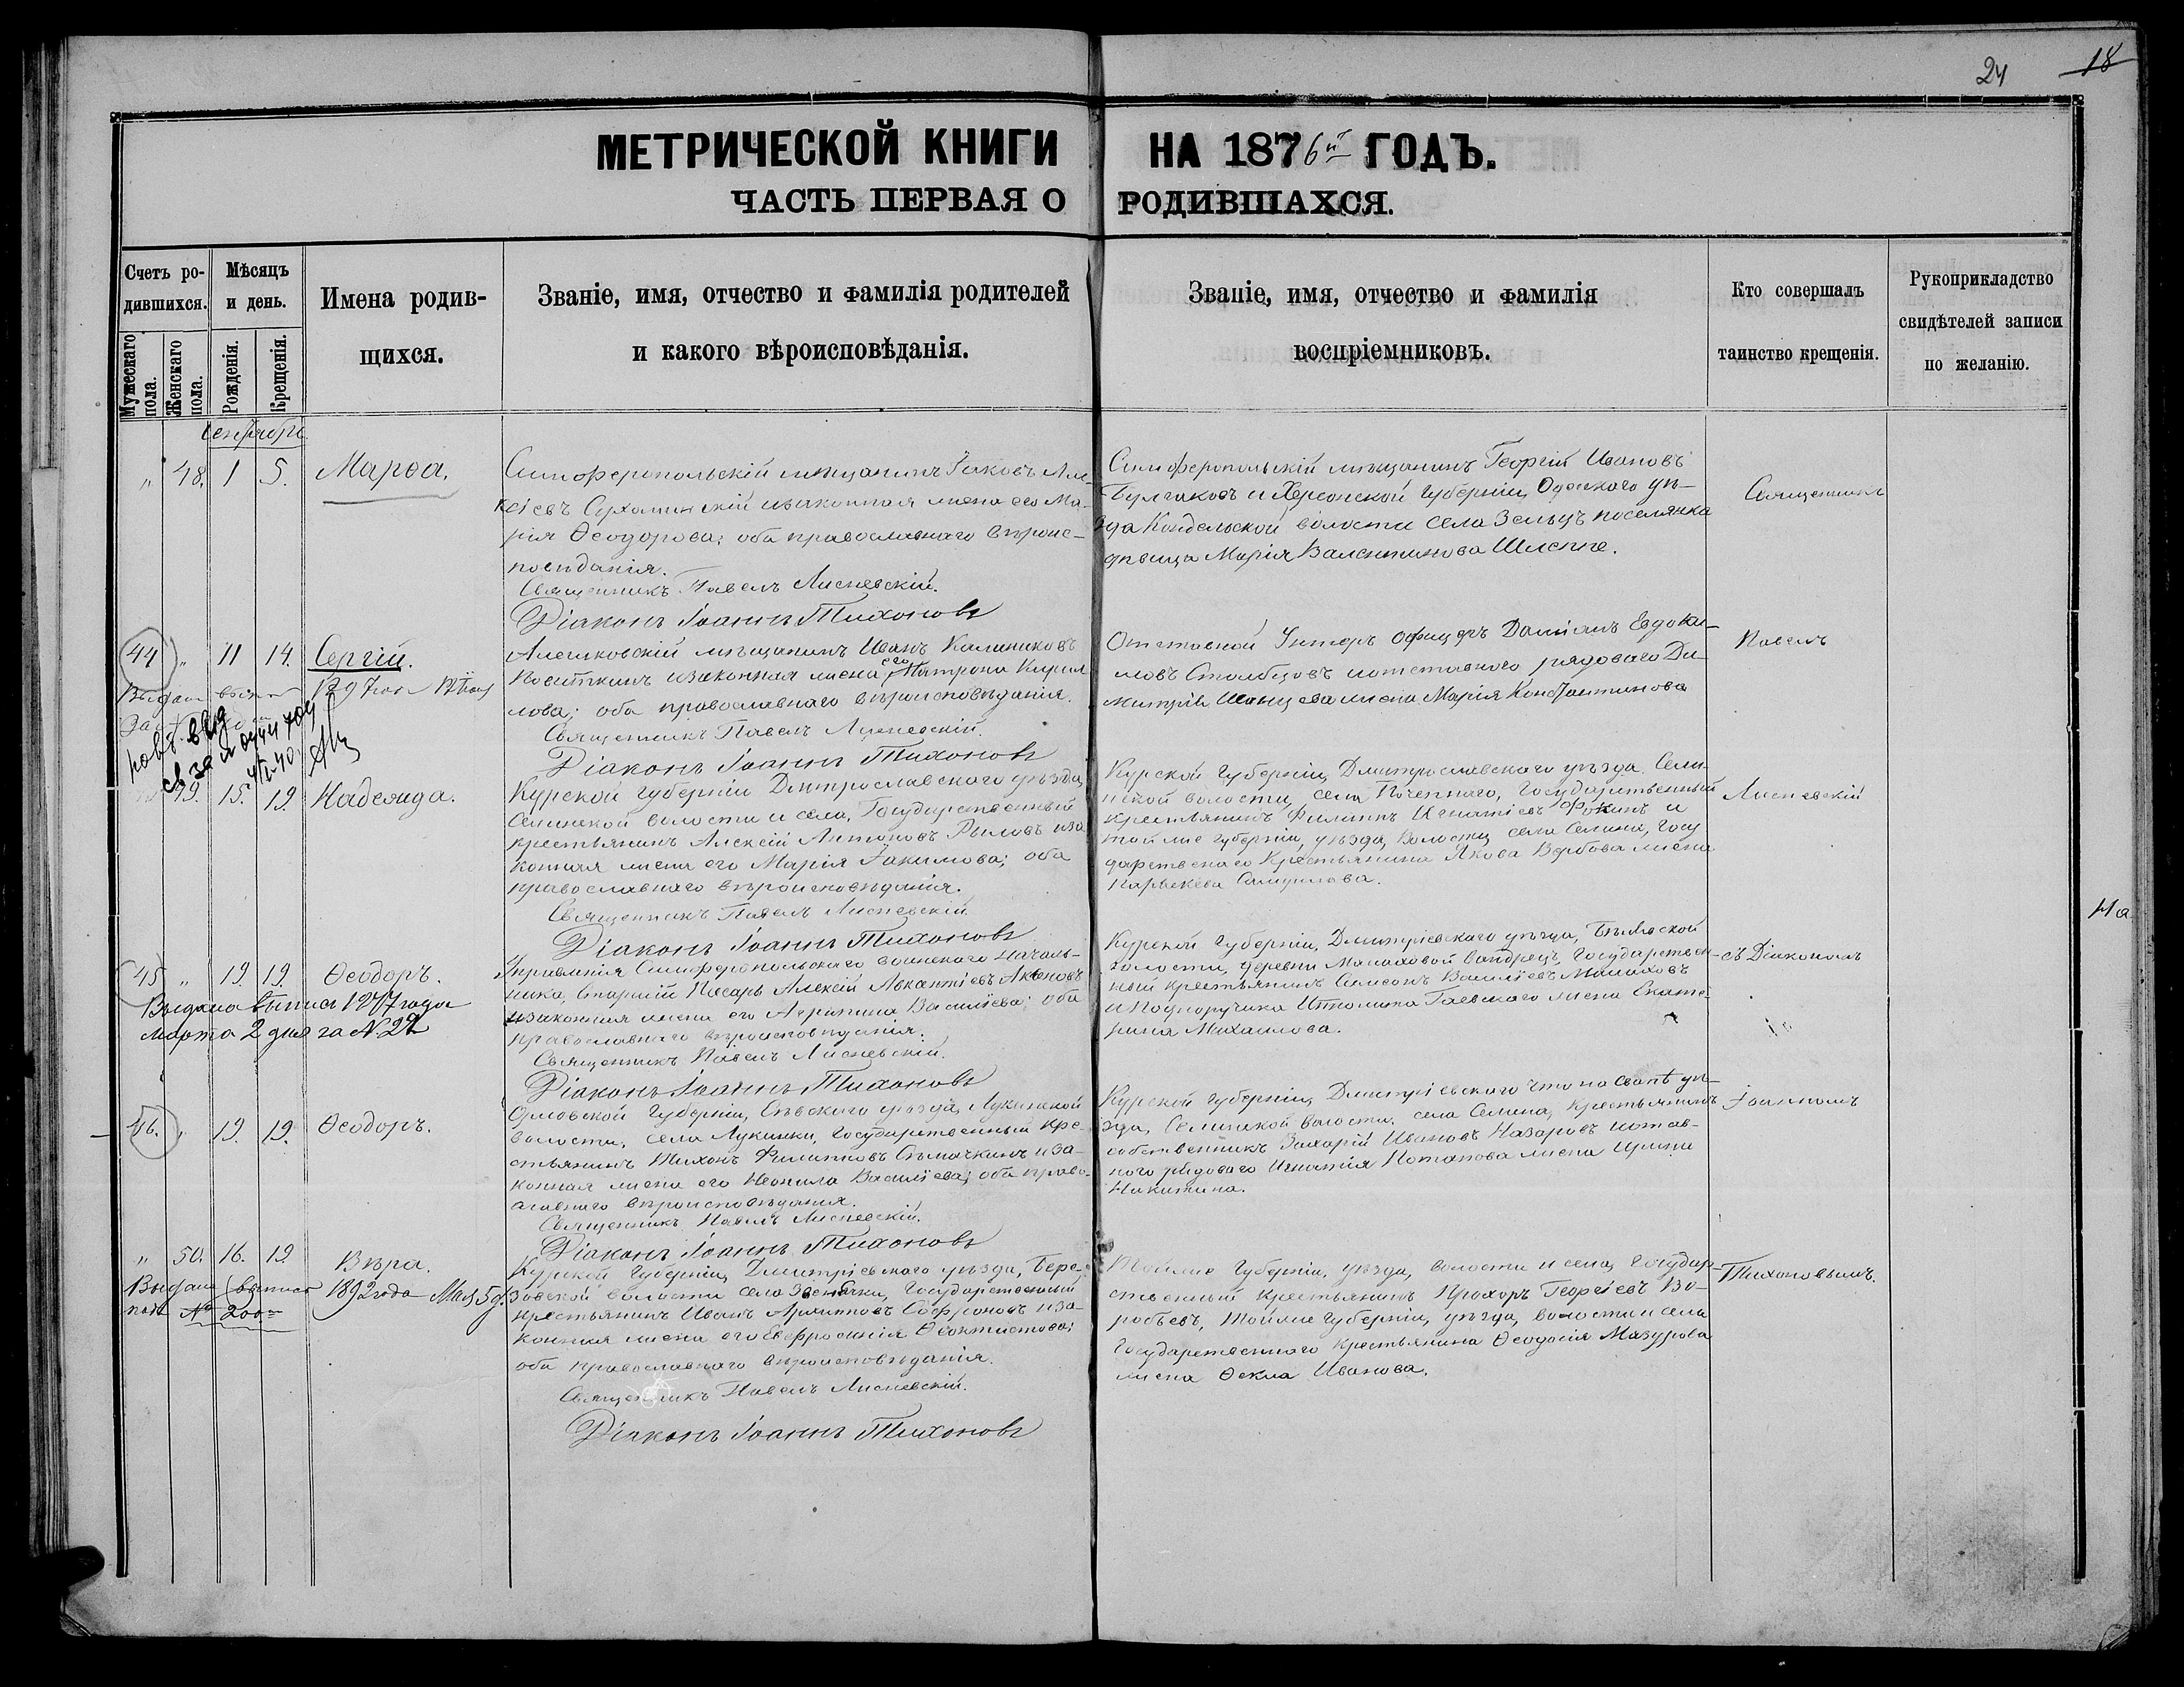 24 18
МЕТРИЧЕСКОЙ КНИГИ НА 1876й ГОДЪ.
ЧАСТЬ ПЕРВАЯ О РОДИВШАХСЯ.
Счетъ ро-
дившихся.
Мужескаго пола.
Женскаго пола.
Мѣсяцъ
и день.
Рожденія.
Крещенія.
Имена родив-
щихся.
Званіе, имя, отчество и фамилія родителей
и какого вѣроисповѣданія.
Званіе, имя, отчество и фамилія
воспріемниковъ.
Кто совершалъ
таинство крещенія.
Рукоприкладство
свидѣтелей записи
по желанію.
Сентябрь.
" 48. 1 5. Марѳа.
Симферопольскій мѣщанинъ Іаковъ Але-
ксіевъ Сухоминскій изаконная жена его Ма-
рія Ѳеодорова; оба православнаго вѣроис-
повѣданія.
Священникъ Павелъ Лисневскій.
Діаконъ Іоаннъ Тихоновъ
Симферопольскій мѣщанинъ Георгій Ивановъ
Булгаковъ и Херсонской губерніи, Одесскаго уѣ-
зда Кондельской волости села Зельцъ поселянка
дѣвица Марія Валентинова Шлетте.
Священникъ
44 " 11 14. Сергій.
Алешковскій мѣщанинъ Иванъ Калиниковъ
изаконная жена его Матрона Кирил
лова; оба православнаго вѣроисповѣданія.
Священникъ Павелъ Лисневскій.
Діаконъ Іоаннъ Тихоновъ
Отставной Унтеръ офицеръ Даміанъ Евдоки-
мовъ Столбцовъ иотставного рядоваго Ди-
митрія жена Марія Константинова
Павелъ
49. 15. 19. Надежда.
Курской губерніи Дмитрославскаго уѣзда,
Селинской волости и села, Государственный
крестьянинъ Алексій Антоновъ Рыловъ иза
конная жена его Марія Іакимова; оба
православнаго вѣроисповѣданія.
Священникъ Павелъ Лисневскій
Діаконъ Іоаннъ Тихоновъ
Курской губерніи, Дмитрославскаго уѣзда. Сели-
нской волости, села Почепнаго, Государственный
крестьянинъ Филиппъ Игнатіевъ Фокинъ и
той же губерніи, уѣзда, волости, села Селина, Госу
дарственаго крестьянина Якова Вербова жена
Параскева Самуилова.
Лисневскій
На
45 " 19. 19. Ѳеодоръ.
Выдана выпись 1877 года
марта 2 дня за №
Управленія Симферопольскаго воинскаго началь-
ника, Старшій Писарь Алексій Аксеновъ
изаконная жена его Агрипина Василіева; оба
православнаго вѣроисповѣданія.
Священникъ Павелъ Лисневскій.
Діаконъ Іоаннъ Тихоновъ
Курской губерніи, Дмитріевскаго уѣзда,
волости, деревни Малаховой Государствен-
ный крестьянинъ Самсонъ Василіевъ Малаховъ
иПодпоручика Гаевскаго жена Екате-
рина Михаилова.
съ Діакономъ
46. " 19. 19. Ѳеодоръ.
Орловской губерніи, Сѣвскаго уѣзда, Лукинской
волости, села Лукинки, Государственный кре-
стьянинъ Тихонъ Филиповъ иза-
конная жена его Неонила Василіева; оба право-
славнаго вѣроисповѣданія.
Священникъ Павелъ Лисневскій.
Діаконъ Іоаннъ Тихоновъ
Курской губерніи, Дмитріевскаго что на Свапѣ уѣ-
зда, Селинской волости, села Селина, крестьянинъ
собственникъ Захарій Ивановъ Назаровъ иотстав-
ного рядоваго Игнатія Потапова жена Ирина
Никитина.
Іоанномъ
" 50. 16. 19. Вѣра.
Выдана выпись 1892 года Мая 5 д.
№ 200
Курской губерніи, Дмитріевскаго уѣзда, Бере-
зовской волости села Государственный
крестьянинъ Иванъ Софроновъ иза-
конная жена его Евфросинія Ѳеоктистова;
оба православнаго вѣроисповѣданія.
Священникъ Павелъ Лисневскій.
Діаконъ Іоаннъ Тихоновъ
Тойже губерніи, уѣзда, волости и села, Государ-
ственный крестьянинъ Прохоръ Георгіевъ Во-
робьевъ, тойже губерніи, уѣзда, волости и села
Государственнаго крестьянина Ѳеодосія Мазурова
жена Ѳекла Иванова.
Тихоновымъ.